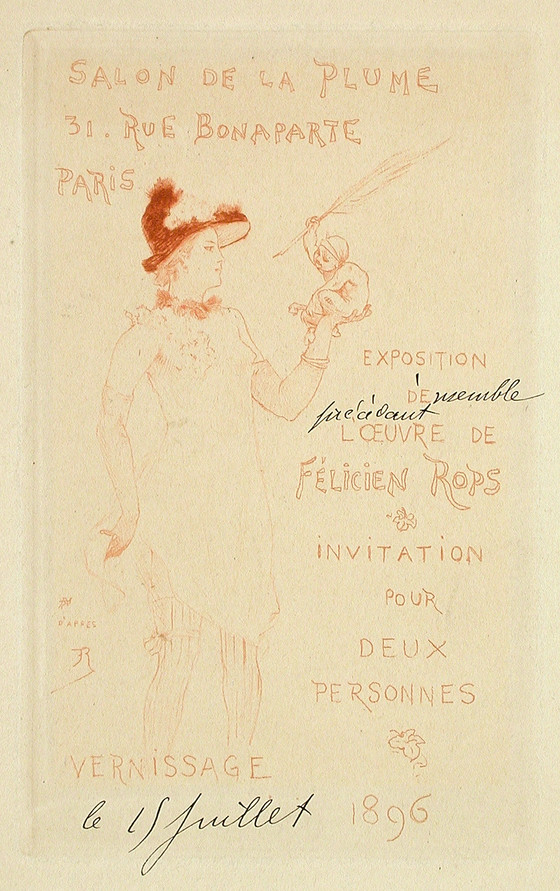 SALON DE LA PLUME
31. RUE BONAPARTE
PARIS
EXPOSITION
D'ensemble
précédant
L'ŒUVRE DE
FÉLICIEN ROPS
INVITATION
POUR
DEUX
PERSONNES
D'APRES
VERNISSAGE
le 15 Juillet 1896